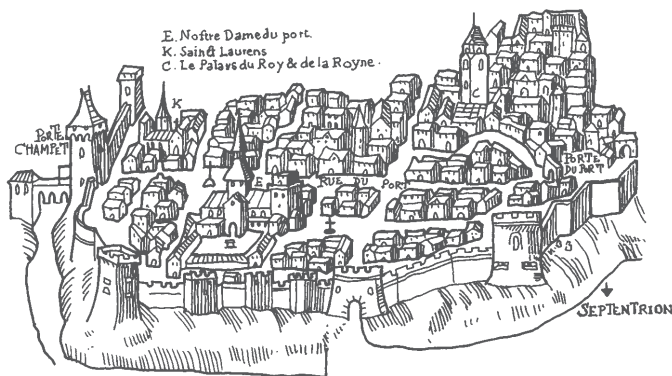 E. Noſtre Dame du port.
K. Sainct Laurens
C. Le Palays du Roy & de la Royne.
K
C
PORTE
CHAMPET
E
RUE DU PORT
PORTE
DU PORT
SEPTENTRION